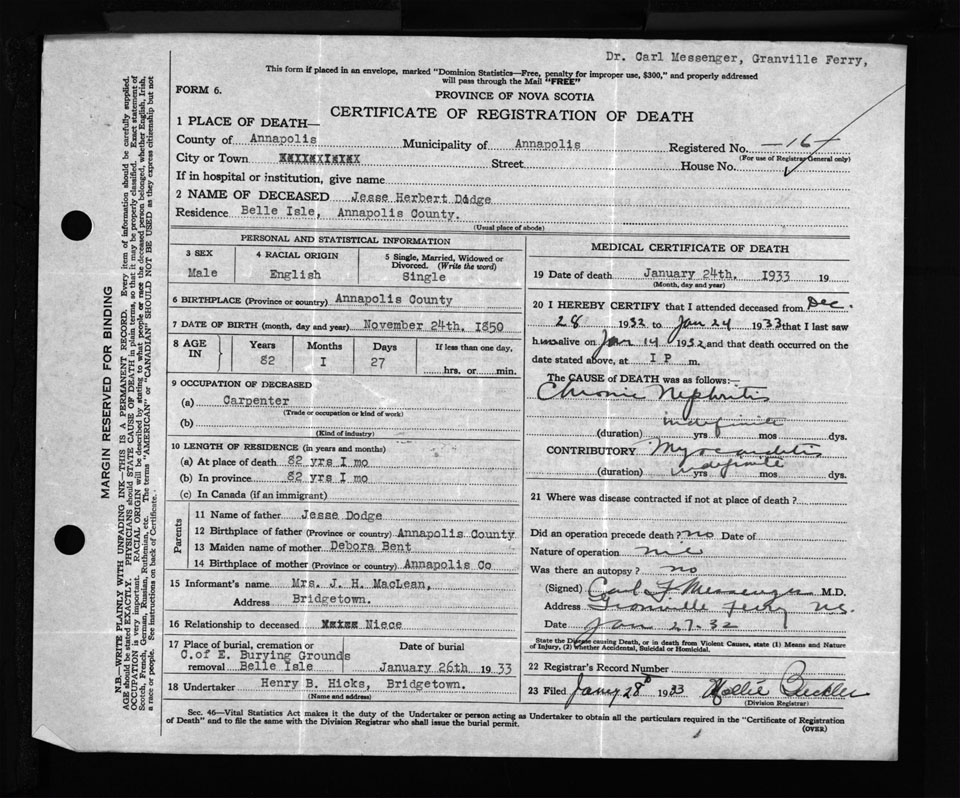 Dr. Carl Messenger, Granville Ferry,
This form if placed in an envelope, marked "Dominion Statistics—Free, penalty for improper use, $300," and properly addressed
will pass through the Mail "FREE"
FORM 6.
PROVINCE OF NOVA SCOTIA
CERTIFICATE OF REGISTRATION OF DEATH
1 PLACE OF DEATH—
County of Annapolis Municipality of Annapolis Registered No. —16
(For use of Registrar General only)
City or Town Street House No.
If in hospital or institution, give name
2 NAME OF DECEASED Jesse Herbert Dodge
Residence Belle Isle, Annapolis County.
(Usual place of abode)
PERSONAL AND STATISTICAL INFORMATION
3 SEX Male
4 RACIAL ORIGIN English
5 Single, Married, Widowed or Divorced. (Write the word) Single
6 BIRTHPLACE (Province or country) Annapolis County
7 DATE OF BIRTH (month, day and year) November 24th, I850
8 AGE IN Years 82 Months I Days 27 If less than one day, hrs. or min.
9 OCCUPATION OF DECEASED
(a) Carpenter
(Trade or occupation or kind of work)
(b)
(Kind of industry)
10 LENGTH OF RESIDENCE (in years and months)
(a) At place of death 82 yrs I mo
(b) In province 82 yrs I mo
(c) In Canada (if an immigrant)
Parents
11 Name of father Jesse Dodge
12 Birthplace of father (Province or country) Annapolis County
13 Maiden name of mother Debora Bent
14 Birthplace of mother (Province or country) Annapolis Co
15 Informant's name Mrs. J. H. MacLean,
Address Bridgetown.
16 Relationship to deceased Niece
17 Place of burial, cremation or removal C.of E. Burying Grounds Belle Isle
Date of burial January 26th 1933
18 Undertaker Henry B. Hicks, Bridgetown.
(Name and address)
MEDICAL CERTIFICATE OF DEATH
19 Date of death January 24th. I933 19
(Month, day and year)
20 I HEREBY CERTIFY that I attended deceased from Dec.
28 1932 to Jan 24 1933 that I last saw
him alive on Jan 14 1932 and that death occurred on the
date stated above, at I P m.
The CAUSE of DEATH was as follows:—
Chronic Nephritis
indefinite
(duration) yrs mos dys.
CONTRIBUTORY Myocarditis
indefinite
(duration) yrs mos dys.
21 Where was disease contracted if not at place of death?
Did an operation precede death? no Date of
Nature of operation
Was there an autopsy? no
(Signed) Carl F. Messenger M.D.
Address Granville Ferry NS.
Date Jan 27-32
State the Disease causing Death, or in death from Violent Causes, state (1) Means and Nature
of Injury, (2) whether Accidental, Suicidal or Homicidal.
22 Registrar's Record Number
23 Filed Jany 28th 1933 Mollie
(Division Registrar)
Sec. 46—Vital Statistics Act makes it the duty of the Undertaker or person acting as Undertaker to obtain all the particulars required in the "Certificate of Registration
of Death" and to file the same with the Division Registrar who shall issue the burial permit.
(OVER)
MARGIN RESERVED FOR BINDING
N.B.—WRITE PLAINLY WITH UNFADING INK—THIS IS A PERMANENT RECORD. Every item of information should be carefully supplied.
AGE should be stated EXACTLY. PHYSICIANS should STATE CAUSE OF DEATH in plain terms, so that it may be properly classified. Exact statement of
OCCUPATION is very important. RACIAL ORIGIN will be described by stating to what people or race the deceased person belonged, whether English, Irish,
Scotch, French, German, Russian, Ruthenian, etc. The terms "AMERICAN" or "CANADIAN" SHOULD NOT BE USED as they express citizenship but not
a race or people. See instructions on back of Certificate.